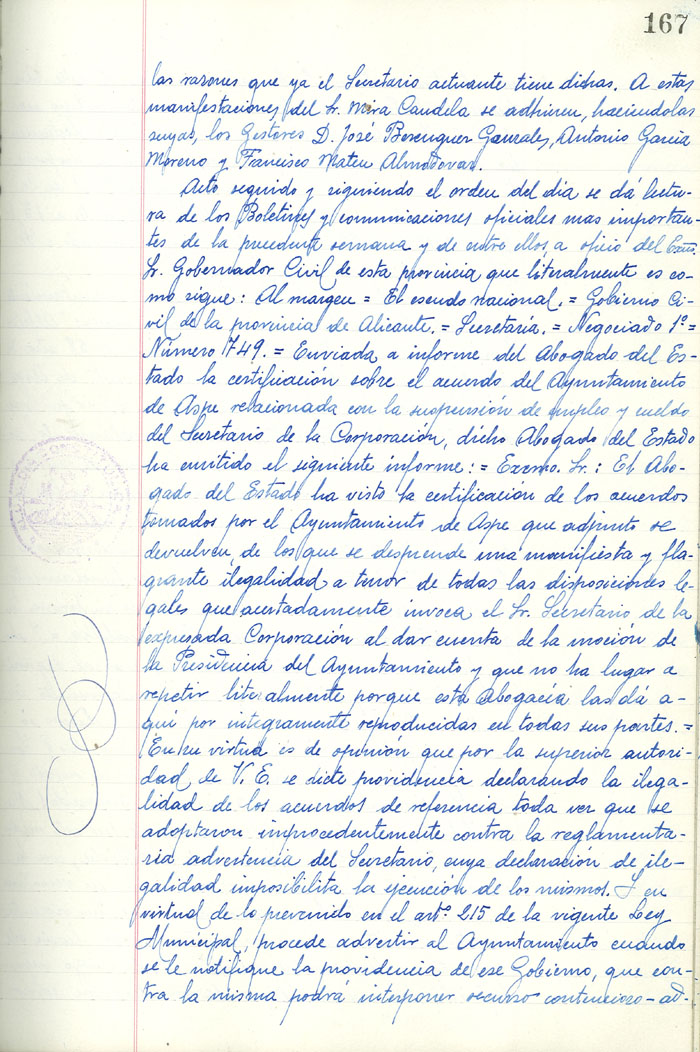 167
las razones que ya el Secretario actuante tiene dichas. A estas
manifestaciones del Sr. Mira Candela se adhieren, haciendolas
suyas, los Gestores D. José Berenguer Gonzales, Antonio Garcia
Moreno y Francisco Mateu Almodovar.
Acto seguido y siguiendo el orden del dia se dá lectu-
ra de los Boletines y comunicaciones oficiales mas importan-
tes de la precedente semana y de entre ellos a oficio del Excmo.
Sr. Gobernador Civil de esta provincia que literalmente es co-
mo sigue: Al margen = El escudo nacional. = Gobierno Ci-
vil de la provincia de Alicante. = Secretaría. = Negociado 1º =
Número 1749. = Enviada a informe del Abogado del Es-
tado la certificación sobre el acuerdo del Ayuntamiento
de Aspe relacionada con la suspensión de empleo y sueldo
del Secretario de la Corporación, dicho Abogado del Estado
ha emitido el siguiente informe: = Excmo. Sr.: El Abo-
gado del Estado ha visto la certificación de los acuerdos
tomados por el Ayuntamiento de Aspe que adjunto se
devuelven, de los que se desprende una manifiesta y fla-
grante ilegalidad a tenor de todas las disposiciones le-
gales que acertadamente invoca el Sr. Secretario de la
expresada Corporación al dar cuenta de la moción de
la Presidencia del Ayuntamiento y que no ha lugar a
repetir literalmente porque esta Abogacía las dá a-
quí por integramente reproducidas en todas sus partes. =
En su virtud es de opinión que por la superior autori-
dad de V. E. se dicte providencia declarando la ilega-
lidad de los acuerdos de referencia toda vez que se
adoptaron improcedentemente contra la reglamenta-
ria advertencia del Secretario, cuya declaración de ile-
galidad imposibilita la ejecución de los mismos. Y en
virtud de lo prevenido en el artº 215 de la vigente Ley
Municipal, procede advertir al Ayuntamiento cuando
se le notifique la providencia de ese Gobierno, que con-
tra la misma podrá interponer recurso contencioso-ad-